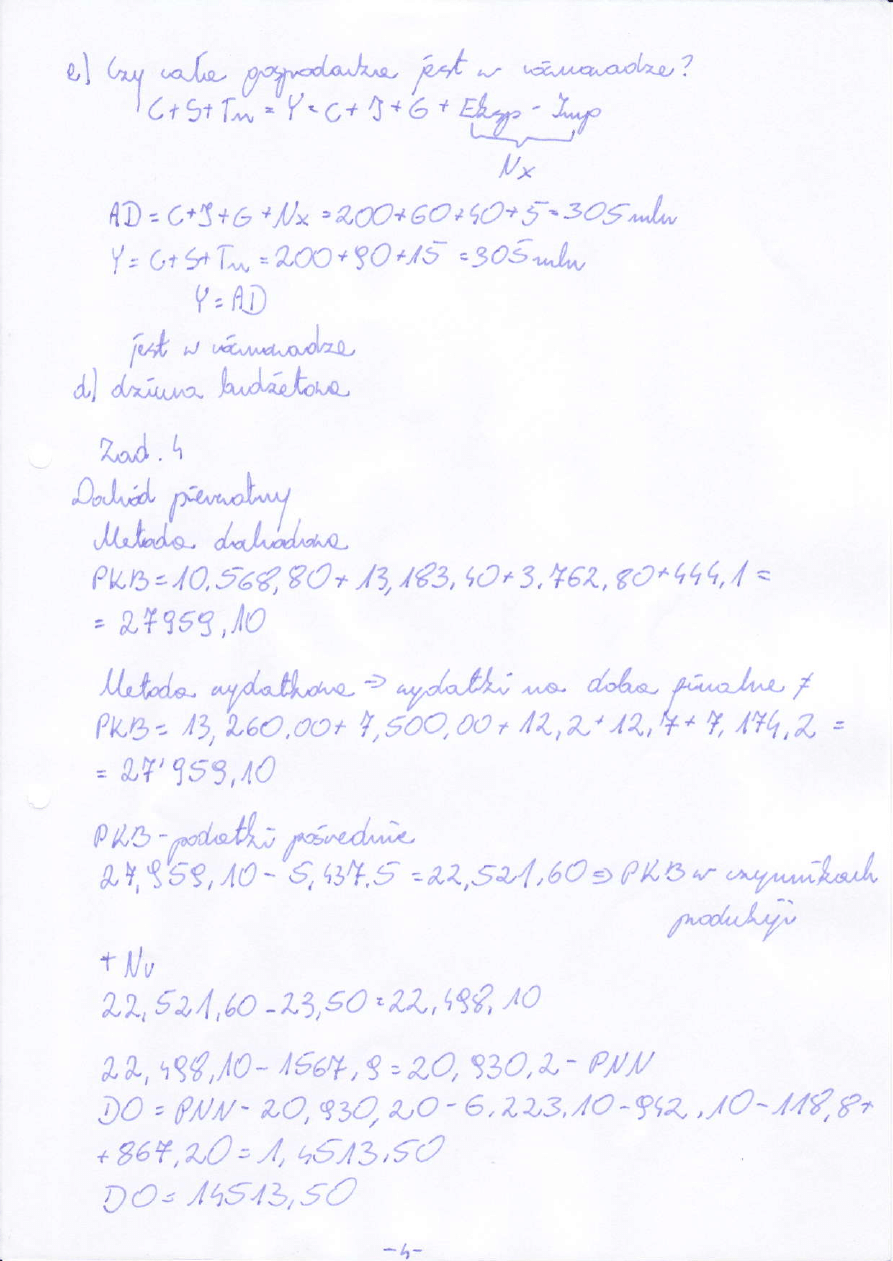 e) Czy całe gospodarstwo jest w równowadze?
C+S+Tn = Y = C+J+G + Eksp - Imp
Nx
AD = C+J+G+Nx = 200+60+40+5 = 305 mln
Y = C+S+Tn = 200+90+15 = 305 mln
Y = AD
jest w równowadze
d) dziura budżetowa
Zad. 4
Dochód pierwotny
Metoda dochodowa
PKB = 10.568,80 + 13,183,40 + 3.762,80 + 444,1 =
= 27959,10
Metoda wydatkowa => wydatki na dobra finalne
PKB = 13,260.00 + 7,500,00 + 12,2 + 12,7 + 7,174,2 =
= 27'959,10
PKB - podatki pośrednie
27,959,10 - 5,437,5 = 22,521,60 => PKB w czynnikach
produkcji
22,521,60 - 23,50 = 22,498,10
22,498,10 - 1567,9 = 20,930,2 - PNN
DO = PNN - 20,930,20 - 6.223,10 - 942,10 - 118,8 +
+ 867,20 = 1,4513,50
DO = 14513,50
-4-